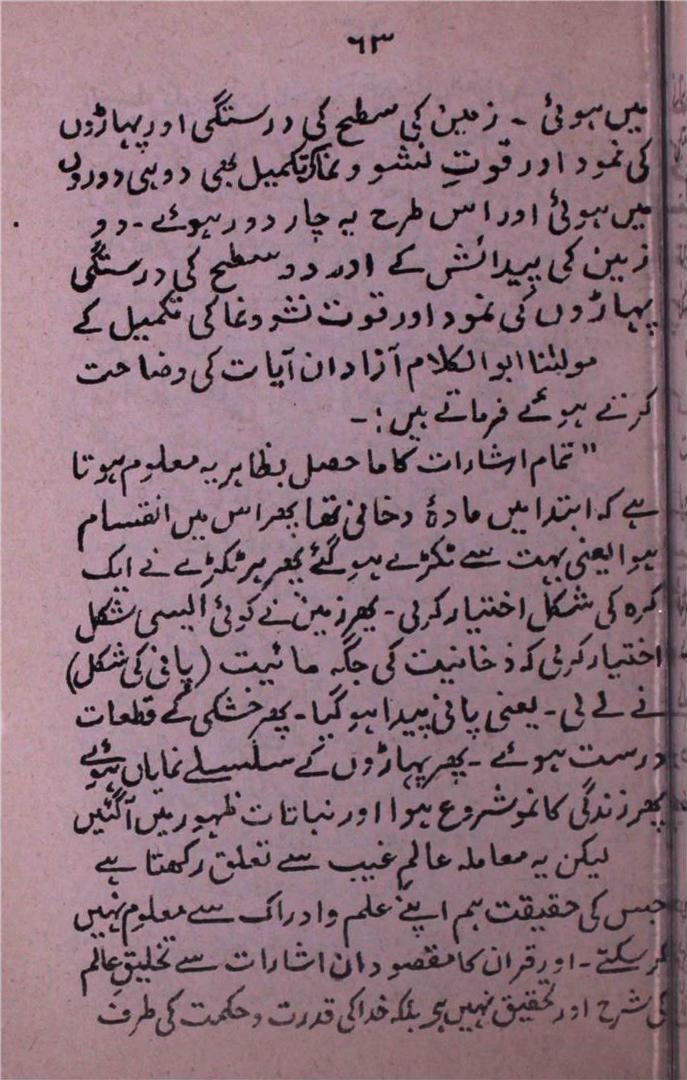 ٦٣
میں ہوئی ۔ زمین کی سطیح کی درستگی اور پہاڑوں
کی نمود اور قوتِ نشو و نما کی تکمیل بھی دو ہی دوروں
میں ہوئی اور اس طرح یہ چار دور ہوئے ۔ دو
زمین کی پیدائش کے اور دو سطیح کی درستگی
پہاڑوں کی نمود اور قوت نشو ونما کی تکمیل کے
مولٰنا ابو الکلام آزاد ان آیات کی وضاحت
کرتے ہوئے فرماتے ہیں :۔
" تمام ارشارات کا ماحصل بظاہر یہ معلوم ہوتا
ہے کہ ابتدا میں مادۂ دخانی تھا پھر اس میں انقسام
ہوا یعنی بہت سے ٹکڑے ہو گئے پھر ہر ٹکڑے نے ایک
کرہ کی شکل اختیار کرلی ۔ پھر زمین نے کوئی ایسی شکل
اختیار کرلی کہ دخانیت کی جگہ مائیت (پانی کی شکل)
نے لے لی ۔ یعنی پانی پیدا ہو گیا ۔ پھر خشکی کے قطعات
درست ہوئے ۔ پھر پہاڑوں کے سلسلے نمایاں ہوئے
پھر زندگی کا نمو شروع ہوا اور نباتات ظہور میں آگئیں
لیکن یہ معاملہ عالمِ غیب سے تعلق رکھتا ہے
جس کی حقیقت ہم اپنے علم وادراک سے معلوم نہیں
کر سکتے ۔ اور قران کا مقصود ان اشارات سے تخلیقِ عالم
کی شرح اور تحقیق نہیں ہے بلکہ خدا کی قدرت و حکمت کی طرف